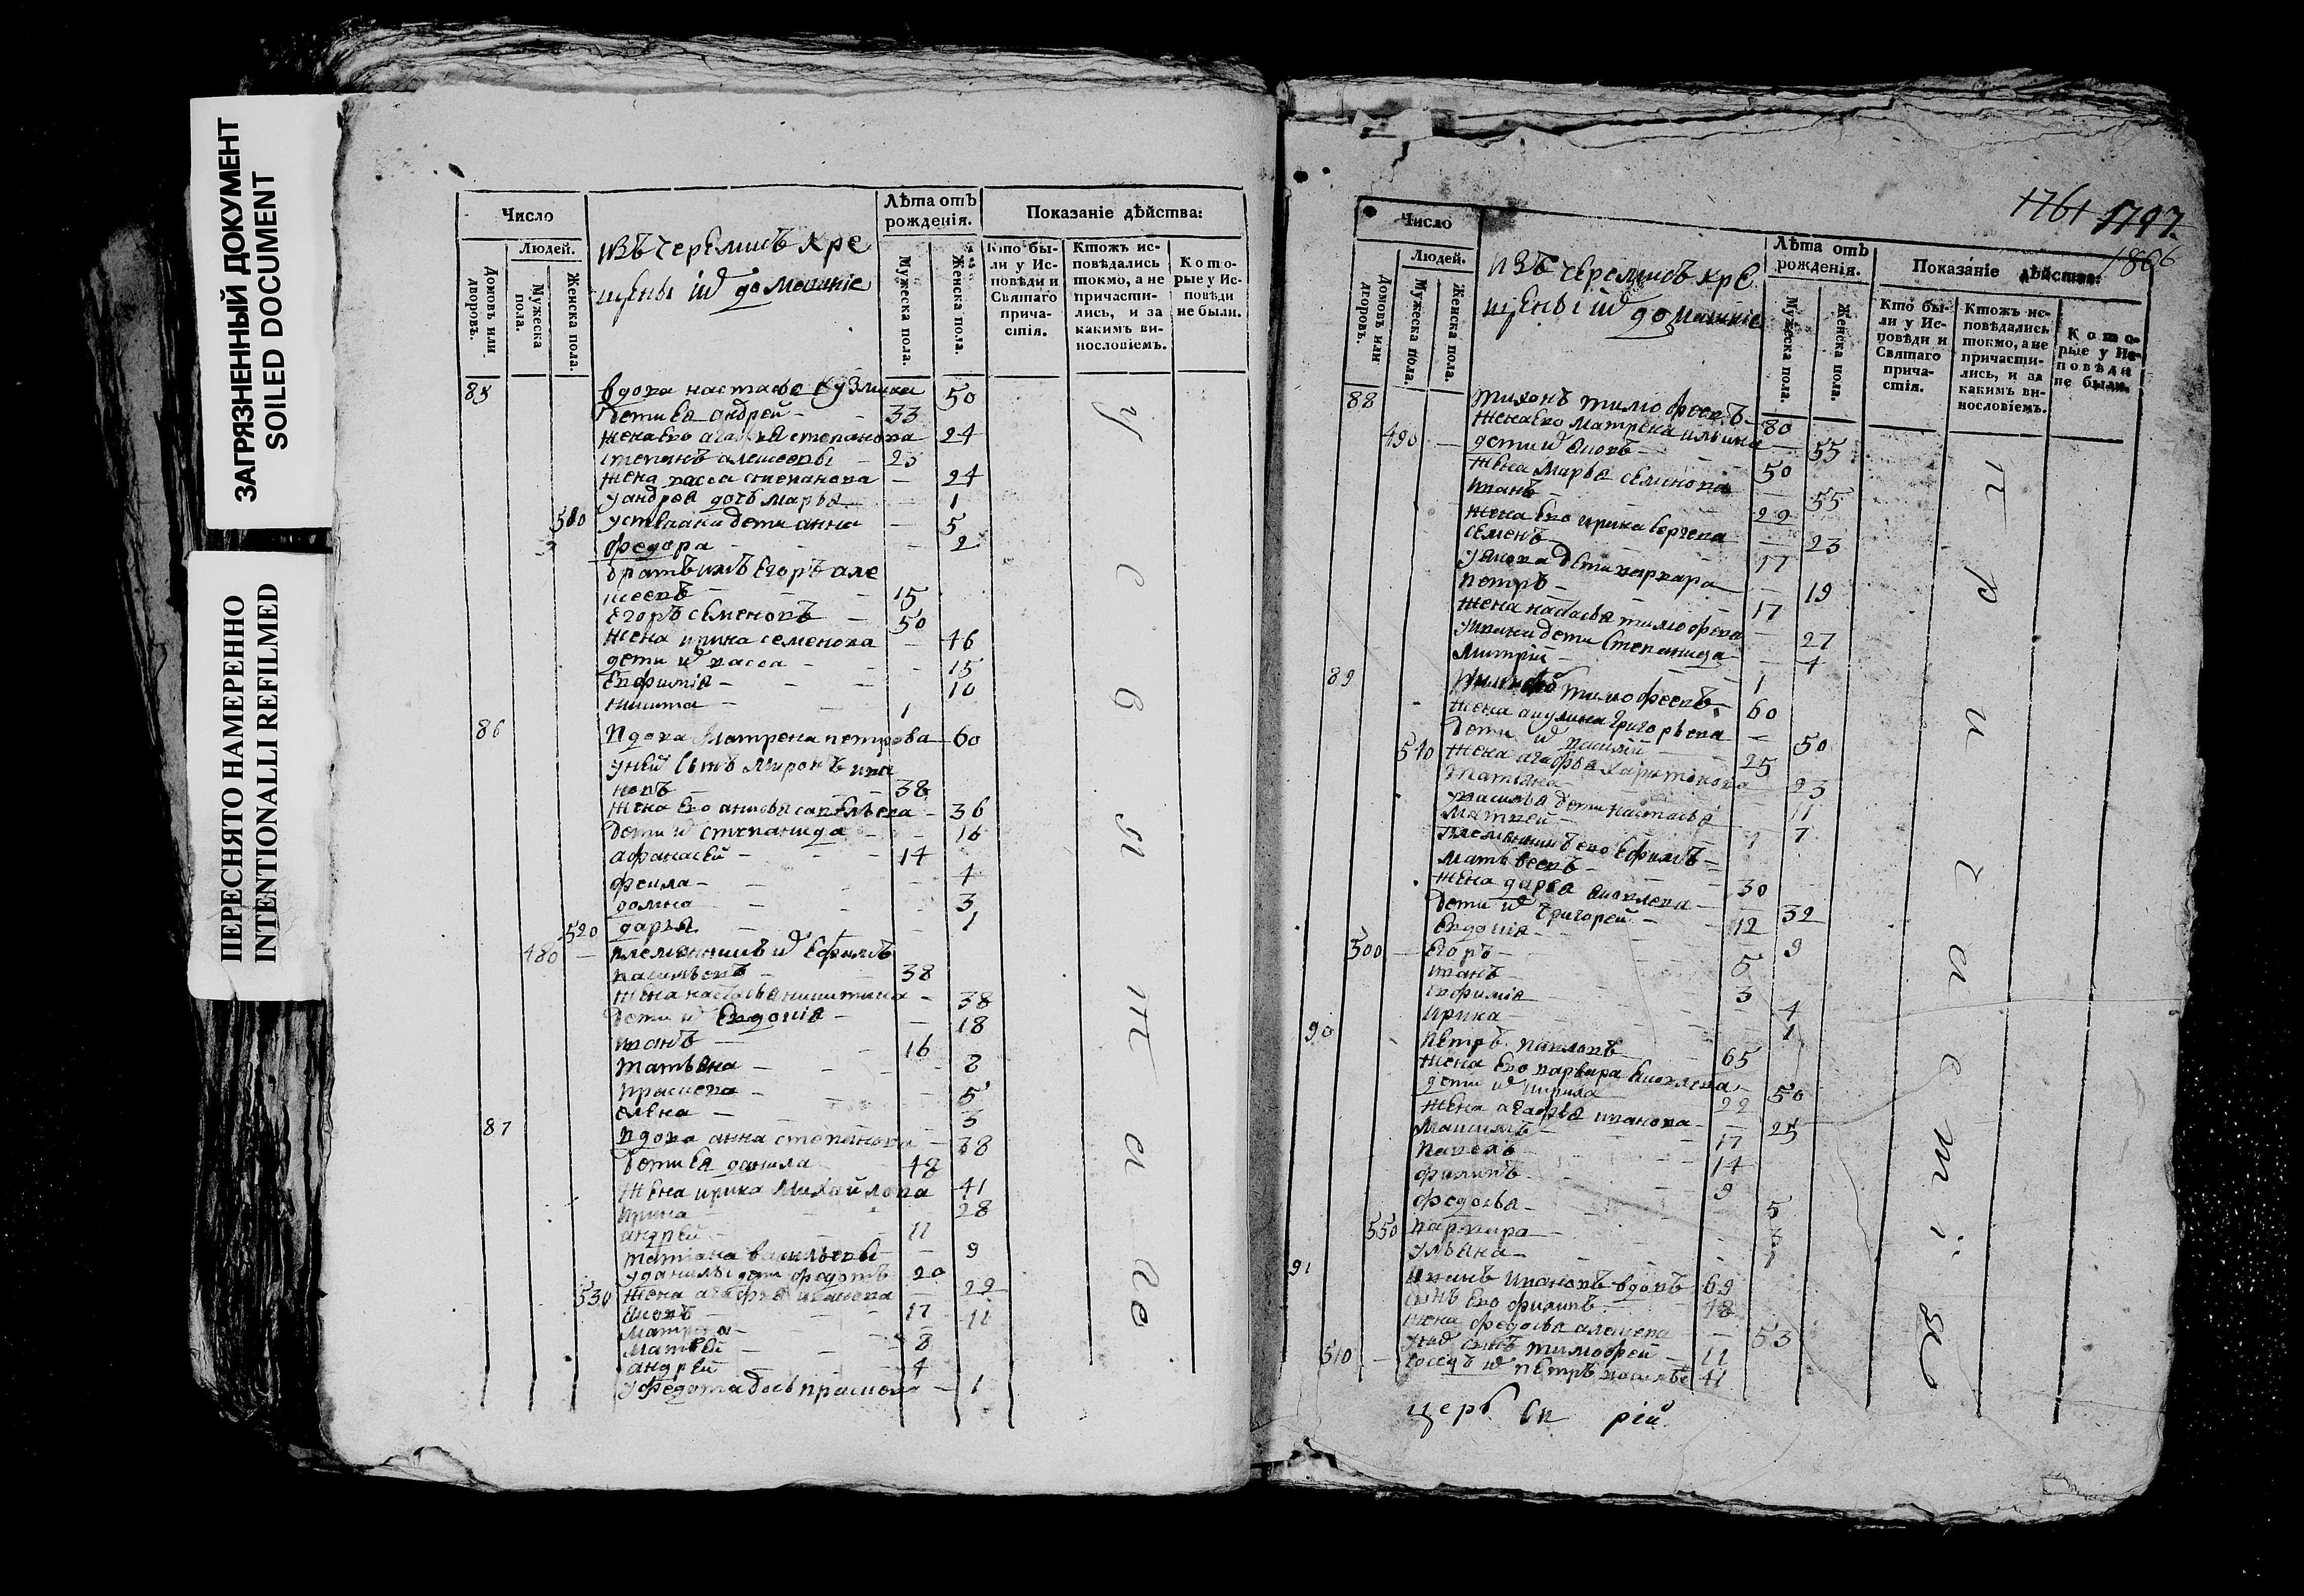 ЗАГРЯЗНЕННЫЙ ДОКУМЕНТ
SOILED DOCUMENT
ПЕРЕСНЯТО НАМЕРЕННО
INTENTIONALLI REFILMED
Число
Людей.
Домовъ или дворовъ.
Мужеска пола.
Женска пола.
изъ черемисъ кре
щены ихъ домашніе
Лѣта отъ рожденія.
Мужеска пола.
Женска пола.
Показаніе дѣйства:
Кто бы-
ли у Ис-
повѣди и
Святаго
прича-
стія.
Ктожъ ис-
повѣдались
токмо, а не
причасти-
лись, и за
какимъ ви-
нословіемъ.
Кото-
рые у Ис-
повѣди
не были.
85 вдова настасья кузмина 50
дети ея андрей 33
жена его агафья степанова 24
степанъ алексеевы 23
жена васса степанова 24
у андрея дочь марья 1
510 у степана дети анна 5
федора 2
братъ ихъ егоръ але
ксеевъ 15
егоръ семеновъ 50
жена ирина семенова 46
дети ихъ васса 15
евфимія 10
никита 1
86 вдова матрена петрова 60
у ней сынъ миронъ ива
новъ 38
жена его анисья савельева 36
дети ихъ степанида 16
афанасей 14
фекла 4
домна 3
520 дарья 1
480 племянникъ ихъ ефимъ
васильевъ 38
жена настасья никитина 38
дети ихъ евдокія 18
иванъ 16
татьяна 8
прасковья 5
елена 3
87 вдова анна степанова 38
дети ея данила 42
жена ирина михайлова 41
ирина 28
андрей 11
татіана васильевы 9
у данилы дети федотъ 20
530 жена агафья иванова 22
яковъ 17
матрена 11
матвей 8
андрей 4
у федота дочь прасковья 1
у с в я т а го
1761 1797
1806
Число
Людей.
Домовъ или дворовъ.
Мужеска пола.
Женска пола.
изъ черемисъ кре
щены ихъ домашніе
Лѣта отъ рожденія.
Мужеска пола.
Женска пола.
Показаніе дѣйства:
Кто бы-
ли у Ис-
повѣди и
Святаго
прича-
стія.
Ктожъ ис-
повѣдались
токмо, а не
причасти-
лись, и за
какимъ ви-
нословіемъ.
Кото-
рые у Ис-
повѣди
не были.
88 тихонъ тимофеевъ 80
жена его матрена ильина 55
490 дети ихъ яковъ 50
жена марья семенова 55
иванъ 22
жена его ирина егорова 23
семенъ 17
у якова дети варвара 19
петръ 17
жена настасья тимофеева 27
у ивана дети степанида 4
митрій 1
89 тимофеевъ 60
жена акулина григорьева 50
дети ихъ василій 25
540 жена агафья харитонова 23
татьяна 11
у василья дети настасья 7
матвей 1
племянникъ его ефимъ
матвеевъ 30
жена дарья яковлева 32
дети ихъ григорей 12
евдокія 9
500 егоръ 5
иванъ 3
евфимія 4
ирина 1
90 петръ павловъ 65
жена его варвара яковлева 50
дети ихъ кирила 22
жена агафья иванова 25
максимъ 17
павелъ 14
филипъ 9
федосья 5
550 варвара 3
ульяна 1
91 ивановъ вдовъ 69
сынъ его филипъ 48
жена федосья алексеева 53
у нихъ сынъ тимофей 11
510 соседъ ихъ петръ васильевъ 41
п р и ч а с т і я
церк рій